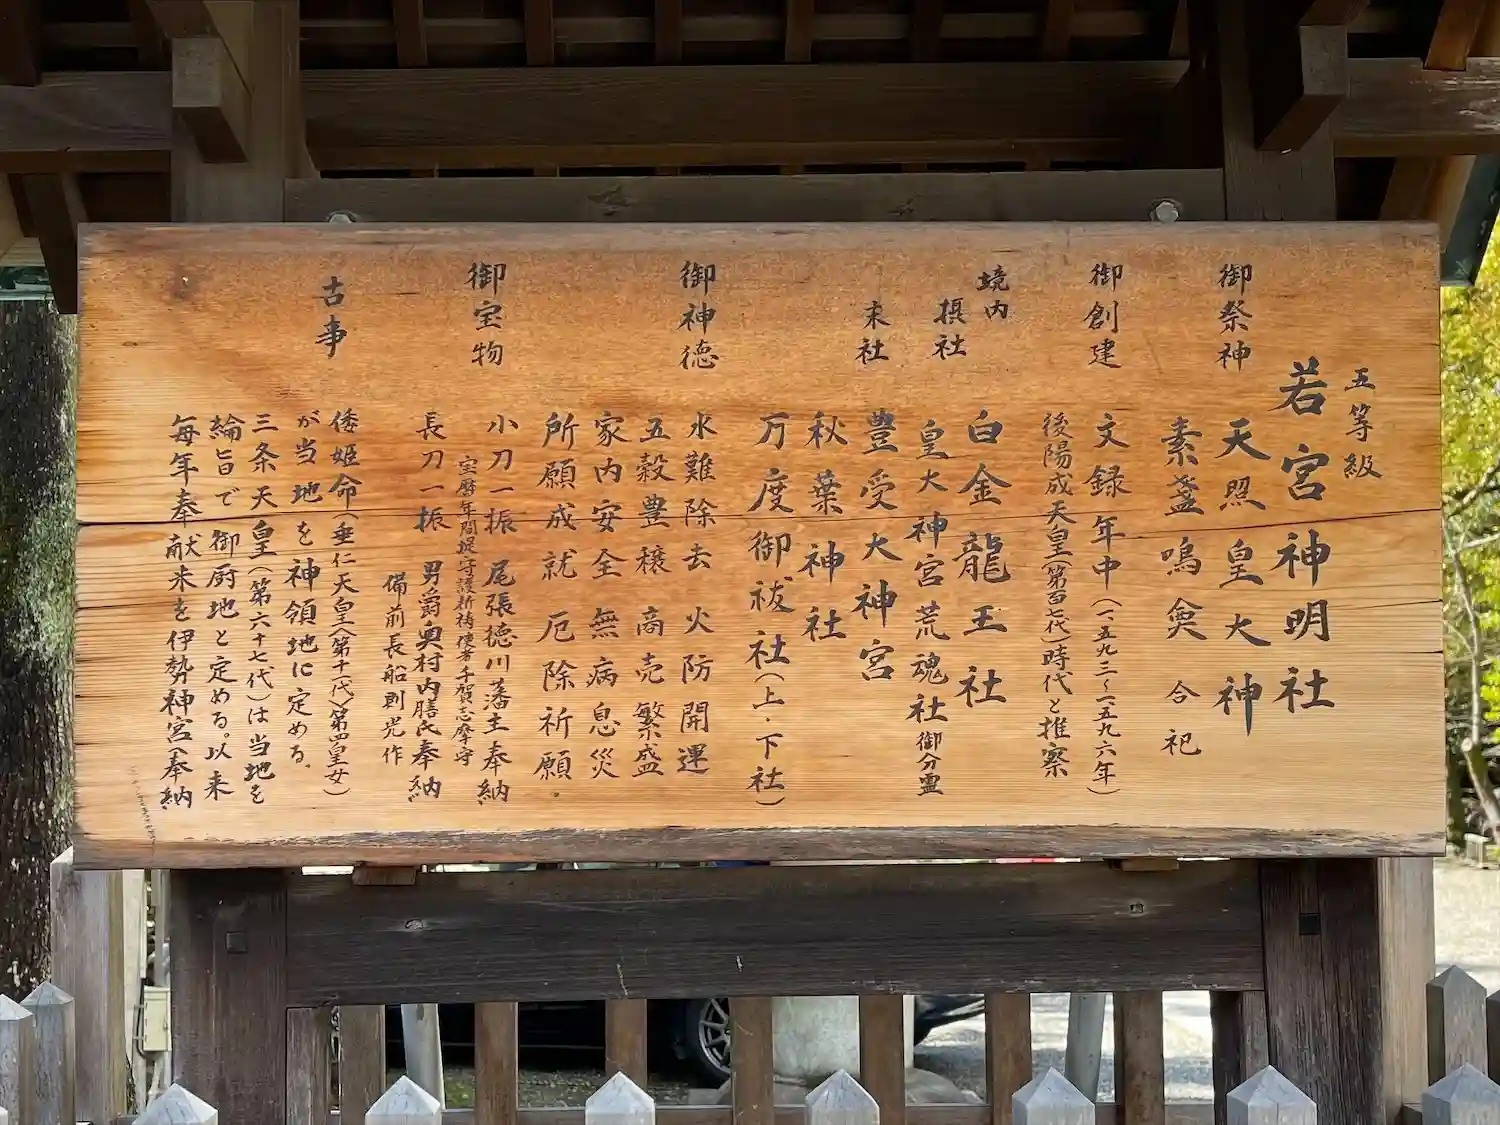 五等級
若宮神明社
御祭神
天照皇大神
素盞嗚尊 合祀
御創建
文録年中(一五九三~一五九六年)
後陽成天皇(第百七代)時代と推察
境内
摂社
白金龍王社
皇大神宮荒魂社御分霊
末社
豊受大神宮
秋葉神社
万度御祓社(上・下社)
御神徳
水難除去 火防開運
五穀豊穣 商売繁盛
家内安全 無病息災
所願成就 厄除祈願.
御宝物
小刀一振 尾張徳川藩主奉納
宝暦年間堤守護祈祷使者千賀志摩守
長刀一振 男爵奥村内膳氏奉納
備前長船則光作
古事
倭姫命(垂仁天皇(第十一代)第四皇女)
が当地を神領地に定める.
三条天皇(第六十七代)は当地を
綸旨で御厨地と定める。以来
毎年奉献米を伊勢神宮へ奉納